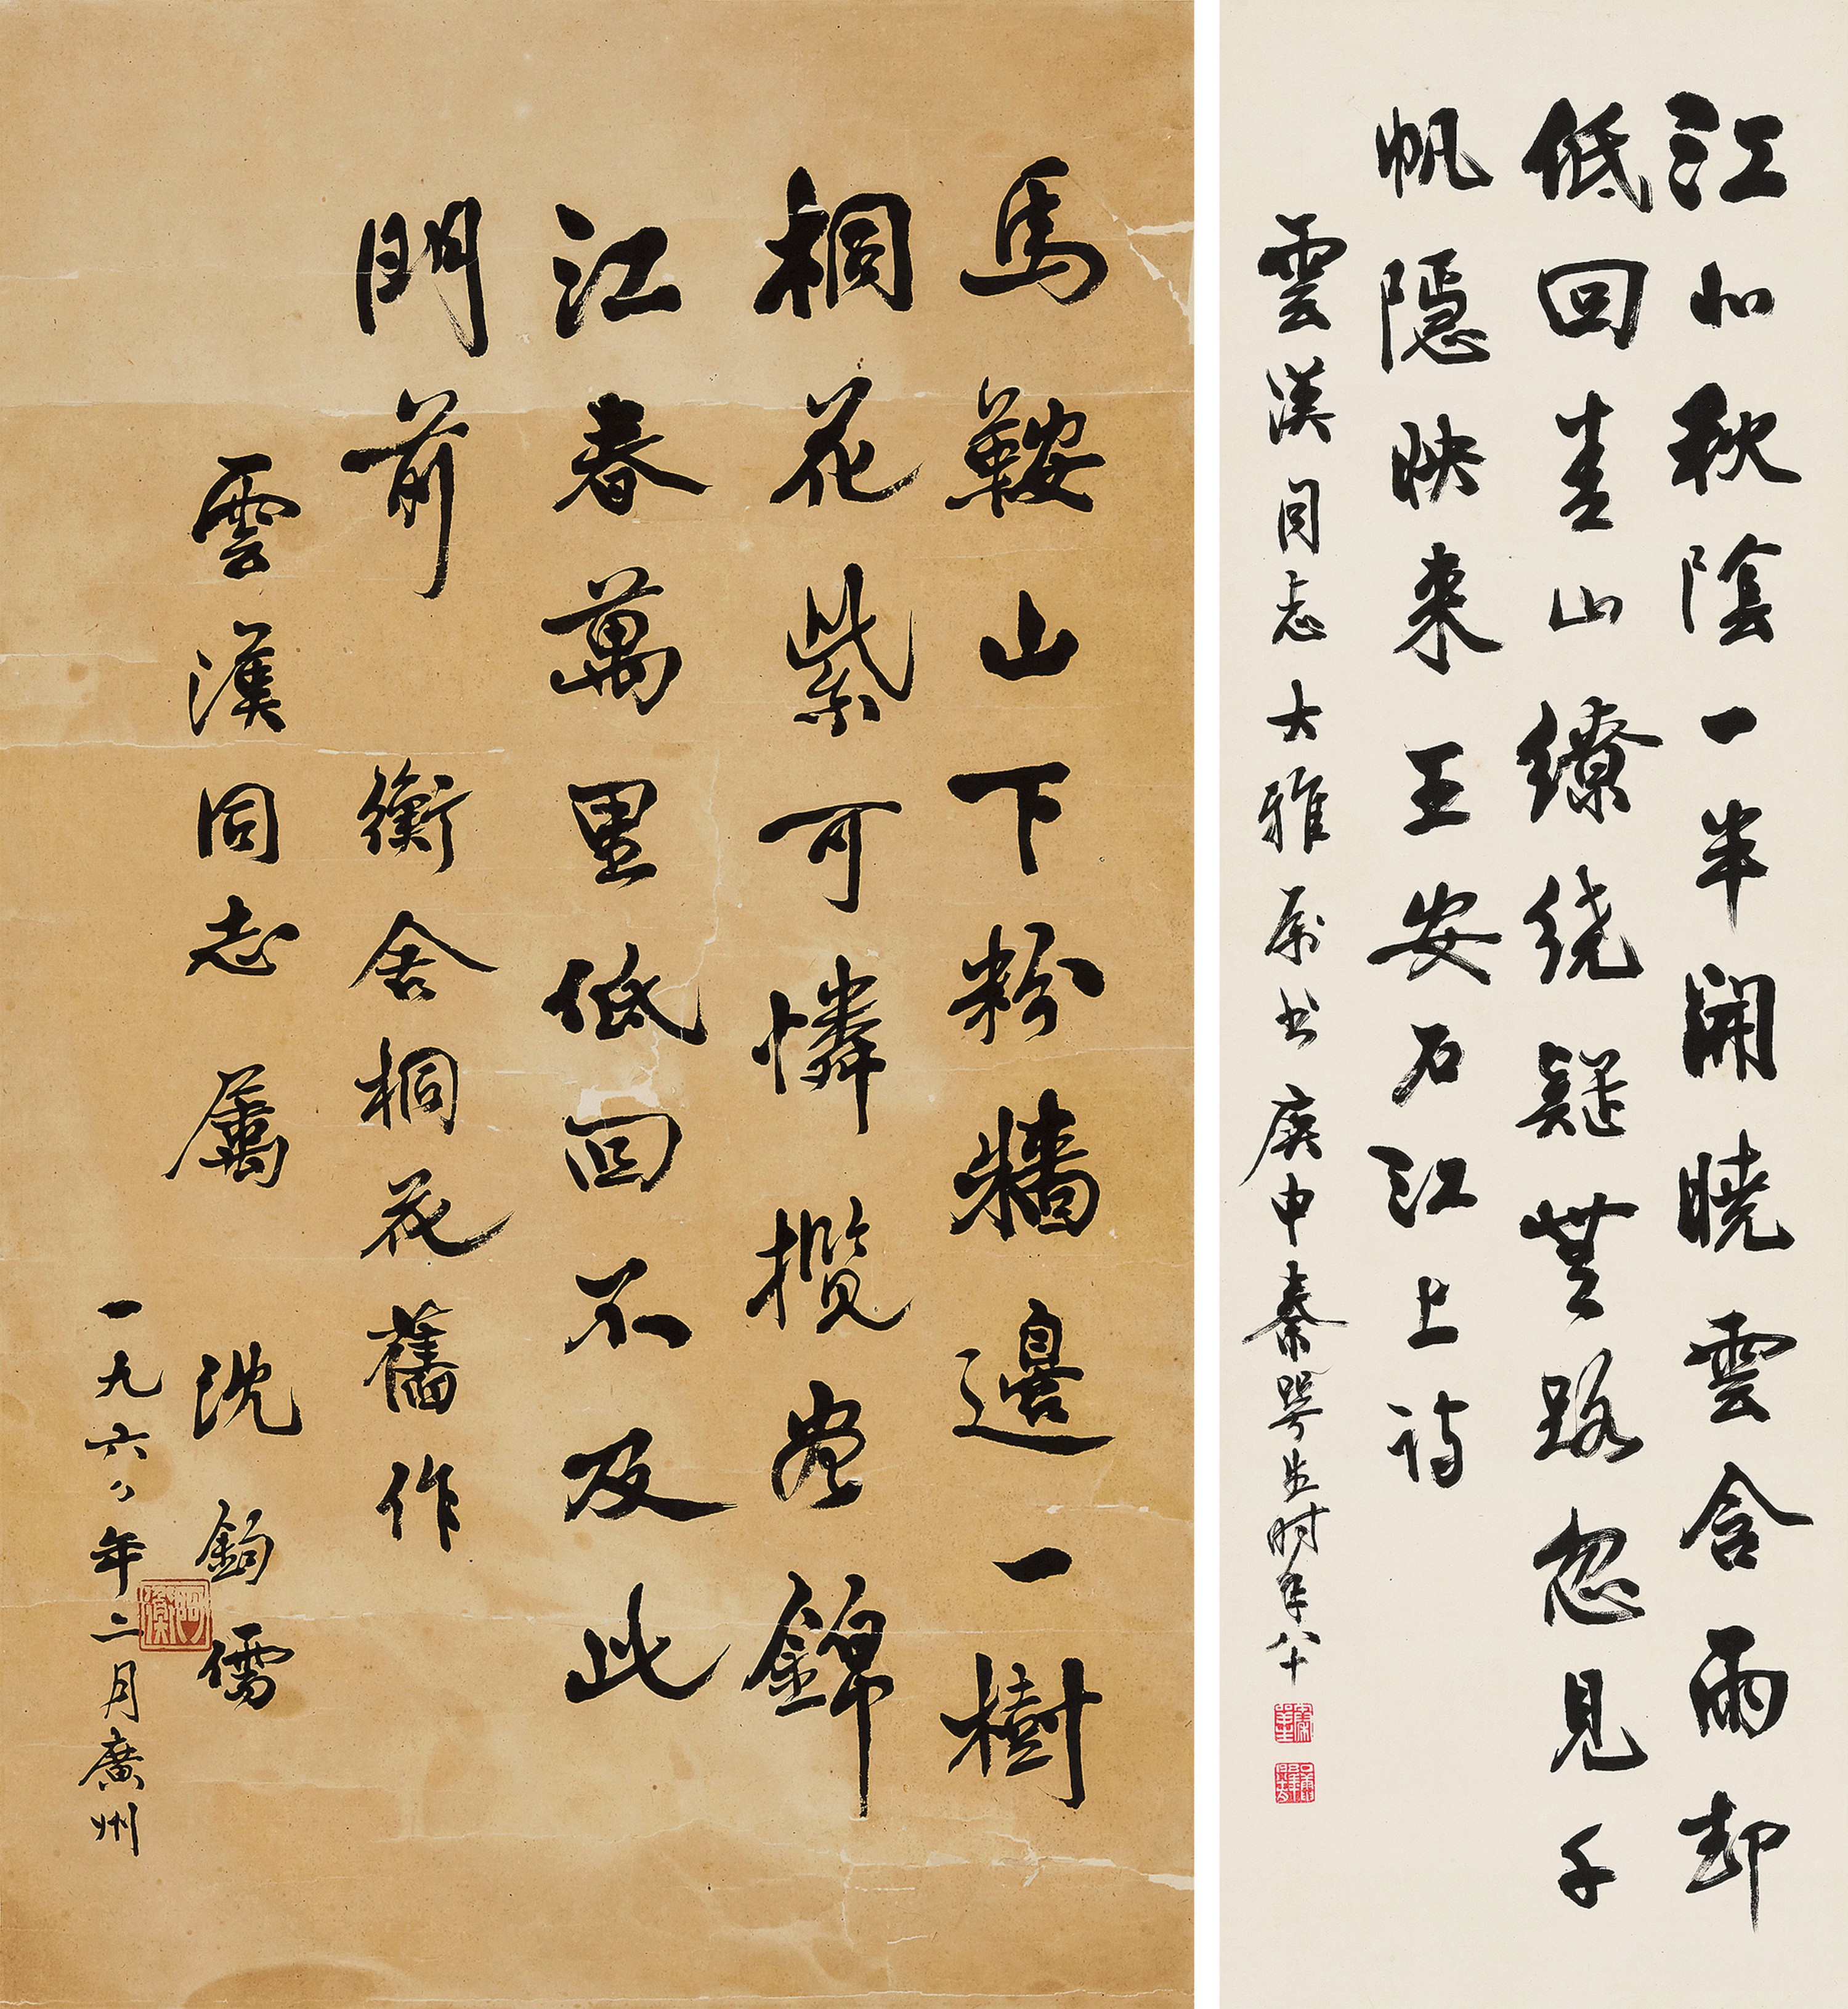 江北秋陰一半開曉雲含雨却
低回青山繚绕疑無路忽見千
帆隱映来王安石江上詩
雲漢同志大雅属书庚申秦咢生时年八十
馬鞍山下粉牆邊一樹
桐花紫可憐攬盡錦
江春萬里低回不及此
門前 衡舍桐花舊作
雲漢同志屬 沈鈞儒
一九六〇年二月廣州